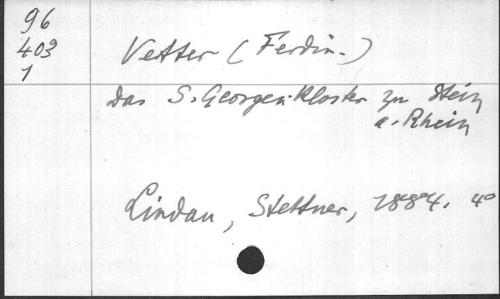 96
403
1
Vetter (Ferdin.)
Das S. Georgen-Kloster zu Stein
a. Rhein
Lindau, Stettner, 1884. 4°